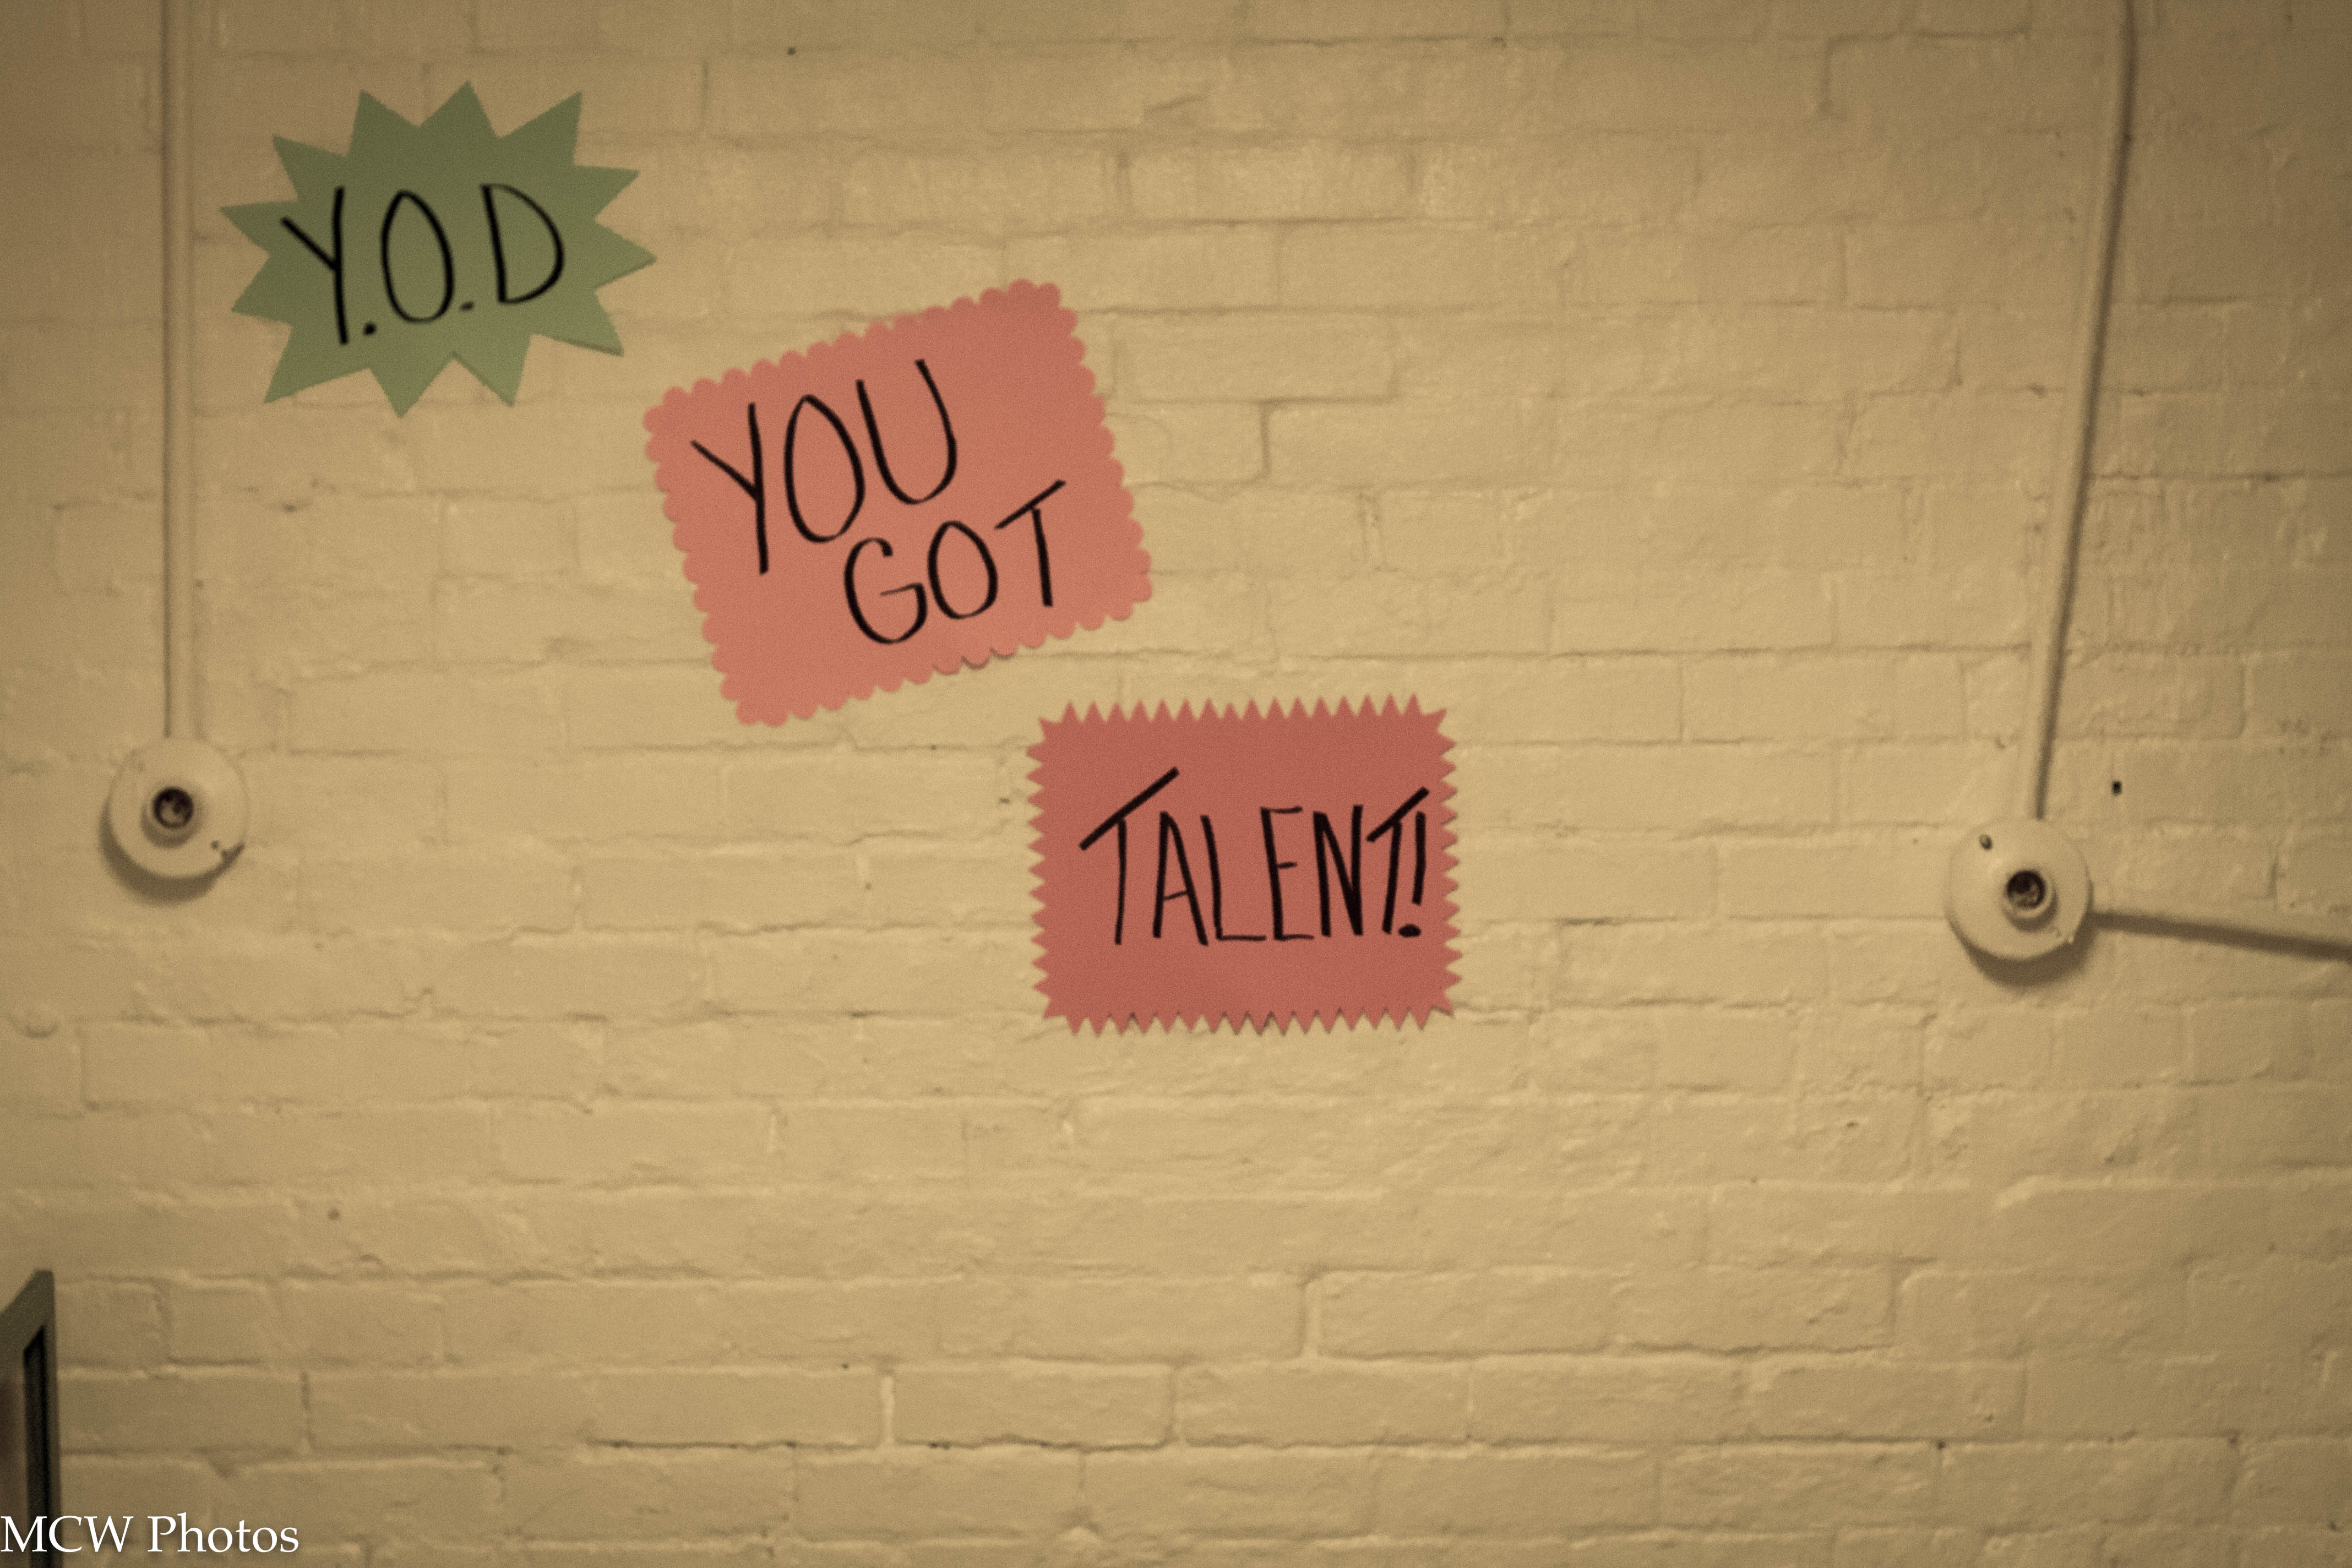 Y.O.D
YOU
GOT
TALENT!
MCW Photos